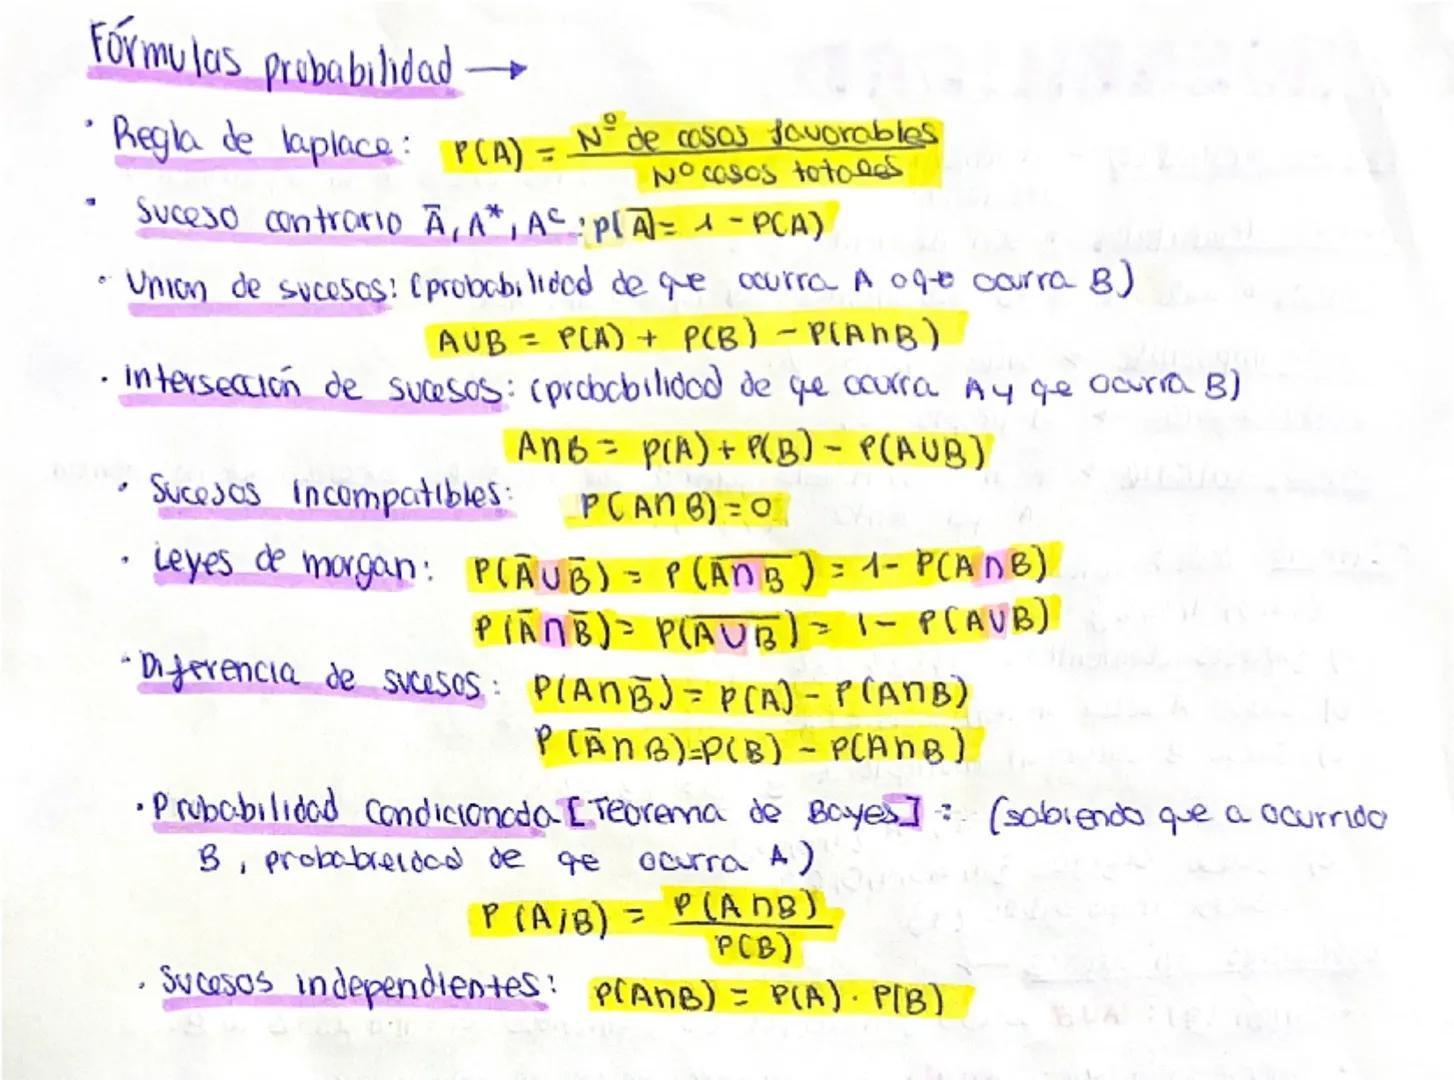 Fórmulas probabilidad →
· Regla de laplace: P(A) = Nº de casos favorables / Nº casos totales
· Suceso contrario Ā, A*, Aᶜ: P(Ā) = 1 - P(A)
· Unión de sucesos: (probabilidad de que ocurra A o qe ocurra B)
AUB = P(A) + P(B) - P(A∩B)
· intersección de sucesos: (probabilidad de qe ocurra A y qe ocurra B)
A∩B = P(A) + P(B) - P(AUB)
· Sucesos incompatibles: P(A∩B) = 0
· Leyes de morgan: P(Ā∪B̄) = P(A̅∩̅B̅) = 1 - P(A∩B)
P(Ā∩B̄) = P(A̅∪̅B̅) = 1 - P(AUB)
· Diferencia de sucesos: P(A∩B̄) = P(A) - P(A∩B)
P(Ā∩B) = P(B) - P(A∩B)
· Probabilidad Condicionada [Teorema de Bayes]: (sabiendo que a ocurrido
B, probabilidad de qe ocurra A)
P(A/B) = P(A∩B) / P(B)
· Sucesos independientes: P(A∩B) = P(A) · P(B)